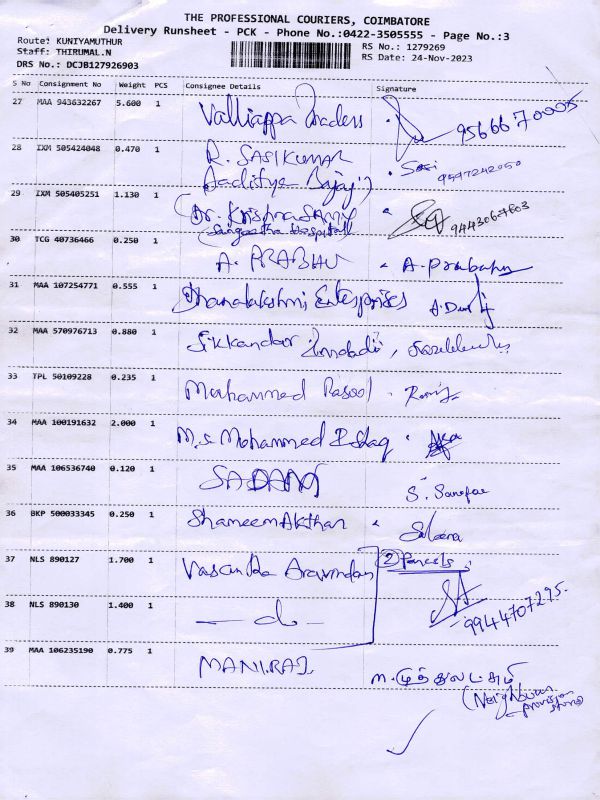 THE PROFESSIONAL COURIERS, COIMBATORE
Delivery Runsheet - PCK - Phone No.:0422-3505555 - Page No.:3
Route: KUNIYAMUTHUR
Staff: THIRUMAL.N
DRS No.: DCJB127926903
RS No.: 1279269
RS Date: 24-Nov-2023
S No Consignment No Weight PCS Consignee Details Signature
27 MAA 943632267 5.600 1 Valliappa Traders
28 IXM 505424048 0.470 1 R. SASIKUMAR 9597242050
Aaditya Bajaj
29 IXM 505405251 1.130 1 (Dr. Krishnasamy
Sangeetha Hospital
30 TCG 40736466 0.250 1 A. PRABHU A. Prabahu
31 MAA 107254771 0.555 1 Dhanalakshmi Enterprises
32 MAA 570976713 0.880 1 Sikkandar
33 TPL 50109228 0.235 1 Mohammed Rasool
34 MAA 100191632 2.000 1 M.S Mohammed
35 MAA 106536740 0.120 1 S.
36 BKP 500033345 0.250 1 Shameem Akthar
37 NLS 890127 1.700 1 Vasantha Aravindan 2 Parcels
38 NLS 890130 1.400 1 — do — 9944707295.
39 MAA 106235190 0.775 1 MANIRAJ ம.முத்துலட்சுமி
(Neighbour
provision
store)